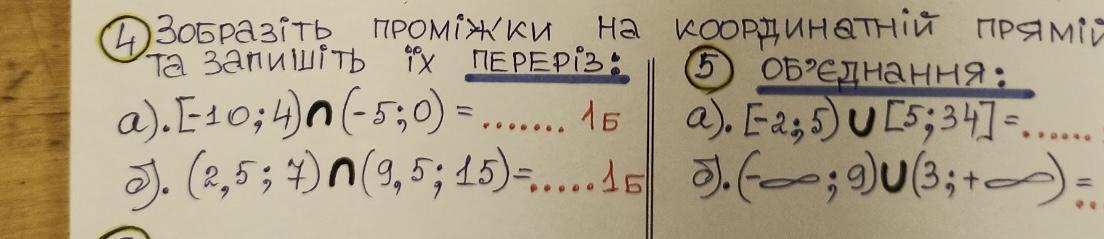 4 Зобразіть проміжки на координатній прямій
та запишіть їх переріз:
а). [-10; 4) ∩ (-5; 0) = ....... 1Б
б). (2,5; 7) ∩ (9,5; 15) = ..... 1Б
5 Об'єднання:
а). [-2; 5) ∪ [5; 34] = ......
б). (-∞; 9) ∪ (3; +∞) = ..